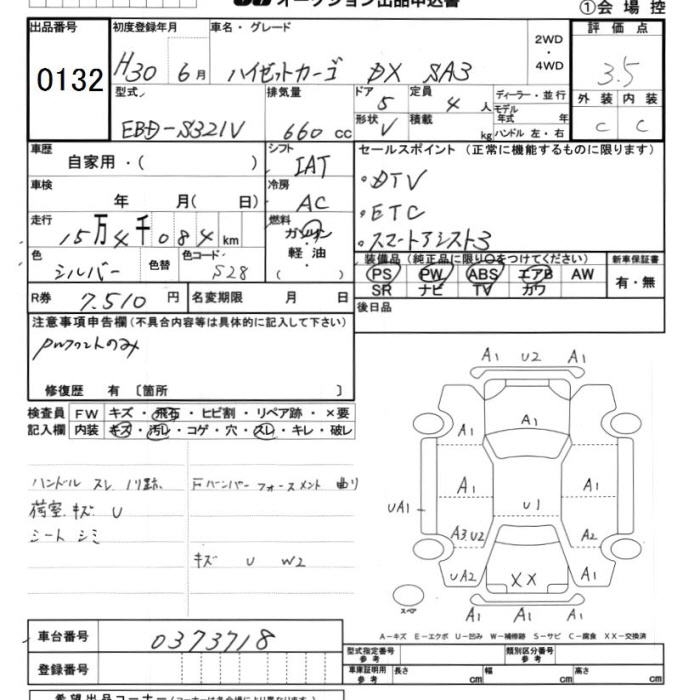 オークション出品申込書
①会場控
出品番号
0132
初度登録年月
H30 6月
車名・グレード
ハイゼットカーゴ DX SA3
2WD
・
4WD
評価点
3.5
型式
EBD-S321V
排気量
660 cc
ドア 5
形状 V
定員 4 人
積載 kg
ディーラー・並行
モデル年式 年
ハンドル 左・右
外装 内装
C C
車歴
自家用・( )
シフト
IAT
セールスポイント (正常に機能するものに限ります)
・DTV
・ETC
・スマートアシスト3
車検
年 月( 日)
冷房
AC
走行
15万4千084km
燃料
ガソリン
・
軽油
( )
色
シルバー
色替
色コード
S28
装備品(純正品に限り○をつけてください)
PS PW ABS エアB AW
SR ナビ TV カワ
新車保証書
有・無
R券 7.510 円
名変期限 月 日
後日品
注意事項申告欄(不具合内容等は具体的に記入して下さい)
PWフロントのみ
修復歴 有 〔箇所 〕
検査員記入欄
FW キズ・飛石・ヒビ割・リペア跡・×要
内装 キズ・汚レ・コゲ・穴・スレ・キレ・破レ
ハンドル スレ ノリ跡
荷室 キズ U
シート シミ
Fバンパーフォースメント 曲り
キズ U W2
A1 U2 A1
A1
A1 A1
A1 A1
UA1 U1
A3 U2 A2
UA2 XX A1
A1 A1 A1
スペア
A-キズ E-エクボ U-凹み W-補修跡 S-サビ C-腐食 XX-交換済
車台番号
0373718
登録番号
型式指定番号
参考
類別区分番号
参考
車庫証明用
参考
長さ cm 幅 cm 高さ cm
希望出品コーナー